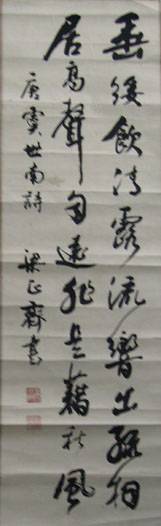 垂緌飲清露流響出疏桐
居高聲自遠非是藉秋風
唐虞世南詩
梁正齋書